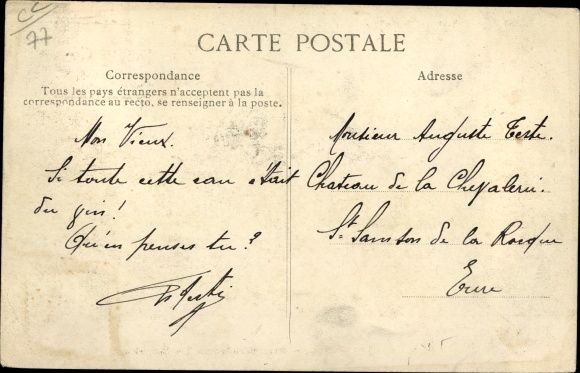 CC
77
CARTE POSTALE
Correspondance
Tous les pays étrangers n'acceptent pas la
correspondance au recto, se renseigner à la poste.
Adresse
Mon Vieux.
Si toute cette eau était
du gin!
Qu'en penses tu?
Monsieur Auguste Teste.
Chateau de la Chevalerie.
St Samson de la Rocque
Eure